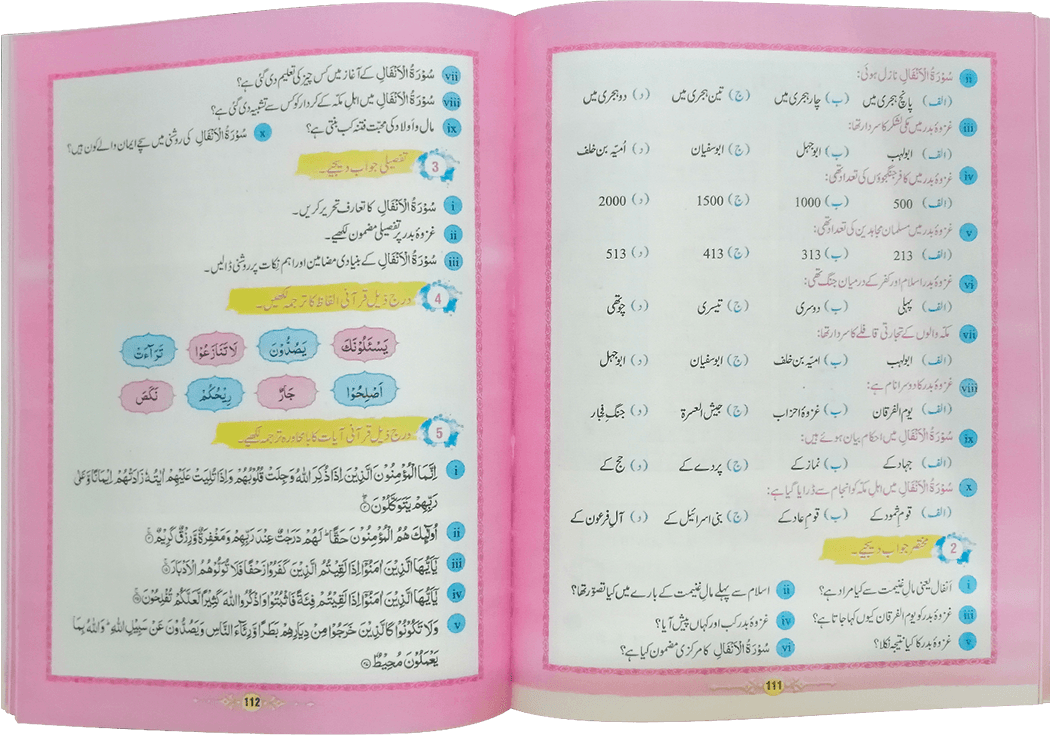 ii سُوْرَۃُ الْاَنْفَالِ نازل ہوئی:
(الف) پانچ ہجری میں (ب) چار ہجری میں (ج) تین ہجری میں (د) دو ہجری میں
iii غزوۂ بدر میں مکی لشکر کا سردار تھا:
(الف) ابولہب (ب) ابوجہل (ج) ابوسفیان (د) اُمیّہ بن خلف
iv غزوۂ بدر میں کافر جنگجوؤں کی تعداد تھی:
(الف) 500 (ب) 1000 (ج) 1500 (د) 2000
v غزوۂ بدر میں مسلمان مجاہدین کی تعداد تھی:
(الف) 213 (ب) 313 (ج) 413 (د) 513
vi غزوۂ بدر اسلام اور کفر کے درمیان جنگ تھی:
(الف) پہلی (ب) دوسری (ج) تیسری (د) چوتھی
vii مکہ والوں کے تجارتی قافلے کا سردار تھا:
(الف) ابولہب (ب) امیّہ بن خلف (ج) ابوسفیان (د) ابوجہل
viii غزوۂ بدر کا دوسرا نام ہے:
(الف) یوم الفرقان (ب) غزوۂ احزاب (ج) جیش العسرۃ (د) جنگِ فجار
ix سُوْرَۃُ الْاَنْفَالِ میں احکام بیان ہوئے ہیں:
(الف) جہاد کے (ب) نماز کے (ج) پردے کے (د) حج کے
x سُوْرَۃُ الْاَنْفَالِ میں اہلِ مکّہ کو انجام سے ڈرایا گیا ہے:
(الف) قومِ ثمود کے (ب) قومِ عاد کے (ج) بنی اسرائیل کے (د) آلِ فرعون کے
2 مختصر جواب دیجیے۔
i اَنفال یعنی مالِ غنیمت سے کیا مراد ہے؟ ii اسلام سے پہلے مالِ غنیمت کے بارے میں کیا تصوّر تھا؟
iii غزوۂ بدر کو یوم الفرقان کیوں کہا جاتا ہے؟ iv غزوۂ بدر کب اور کہاں پیش آیا؟
v غزوۂ بدر کا کیا نتیجہ نکلا؟ vi سُوْرَۃُ الْاَنْفَالِ کا مرکزی مضمون کیا ہے؟
111
vii سُوْرَۃُ الْاَنْفَالِ کے آغاز میں کس چیز کی تعلیم دی گئی ہے؟
viii سُوْرَۃُ الْاَنْفَالِ میں اہلِ مکّہ کے کردار کو کس سے تشبیہ دی گئی ہے؟
ix مال و اولاد کی محبّت فتنہ کب بنتی ہے؟ x سُوْرَۃُ الْاَنْفَالِ کی روشنی میں سچے ایمان والے کون ہیں؟
3 تفصیلی جواب دیجیے۔
i سُوْرَۃُ الْاَنْفَالِ کا تعارف تحریر کریں۔
ii غزوۂ بدر پر تفصیلی مضمون لکھیے۔
iii سُوْرَۃُ الْاَنْفَالِ کے بنیادی مضامین اور اہم نِکات پر روشنی ڈالیں۔
4 درج ذیل قرآنی الفاظ کا ترجمہ لکھیں۔
یَسْـَٔلُوْنَكَ یَصُدُّوْنَ لَا تَنَازَعُوْا تَرَآءَتْ
اَصْلِحُوْا جَارٌ رِیْحُكُمْ نَكَصَ
5 درج ذیل قرآنی آیات کا بامحاورہ ترجمہ لکھیے۔
i اِنَّمَا الْمُؤْمِنُوْنَ الَّذِیْنَ اِذَا ذُكِرَ اللّٰهُ وَجِلَتْ قُلُوْبُهُمْ وَاِذَا تُلِیَتْ عَلَیْهِمْ اٰیٰتُهٗ زَادَتْهُمْ اِیْمَانًا وَّعَلٰی
رَبِّهِمْ یَتَوَكَّلُوْنَ
ii اُولٰٓىِٕكَ هُمُ الْمُؤْمِنُوْنَ حَقًّا ؕ لَهُمْ دَرَجٰتٌ عِنْدَ رَبِّهِمْ وَمَغْفِرَةٌ وَّرِزْقٌ كَرِیْمٌ
iii یٰۤاَیُّهَا الَّذِیْنَ اٰمَنُوْۤا اِذَا لَقِیْتُمُ الَّذِیْنَ كَفَرُوْا زَحْفًا فَلَا تُوَلُّوْهُمُ الْاَدْبَارَ
iv یٰۤاَیُّهَا الَّذِیْنَ اٰمَنُوْۤا اِذَا لَقِیْتُمْ فِئَةً فَاثْبُتُوْا وَاذْكُرُوا اللّٰهَ كَثِیْرًا لَّعَلَّكُمْ تُفْلِحُوْنَ
v وَلَا تَكُوْنُوْا كَالَّذِیْنَ خَرَجُوْا مِنْ دِیَارِهِمْ بَطَرًا وَّرِئَآءَ النَّاسِ وَیَصُدُّوْنَ عَنْ سَبِیْلِ اللّٰهِ ؕ وَاللّٰهُ بِمَا
یَعْمَلُوْنَ مُحِیْطٌ
112